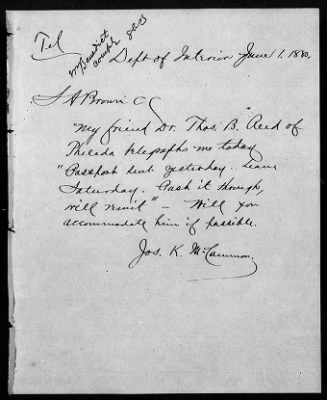 Tel
Mr Benedict
Dept of Interior June 1. 1880,
S A Brown CC
"My friend Dr. Thos. B. Reed of
Philada telegraphs me today
"Passport sent yesterday. Leave
Saturday. Push it through,
will remit" - Will you
accommodate him if possible.
Jos. K. McCammon.